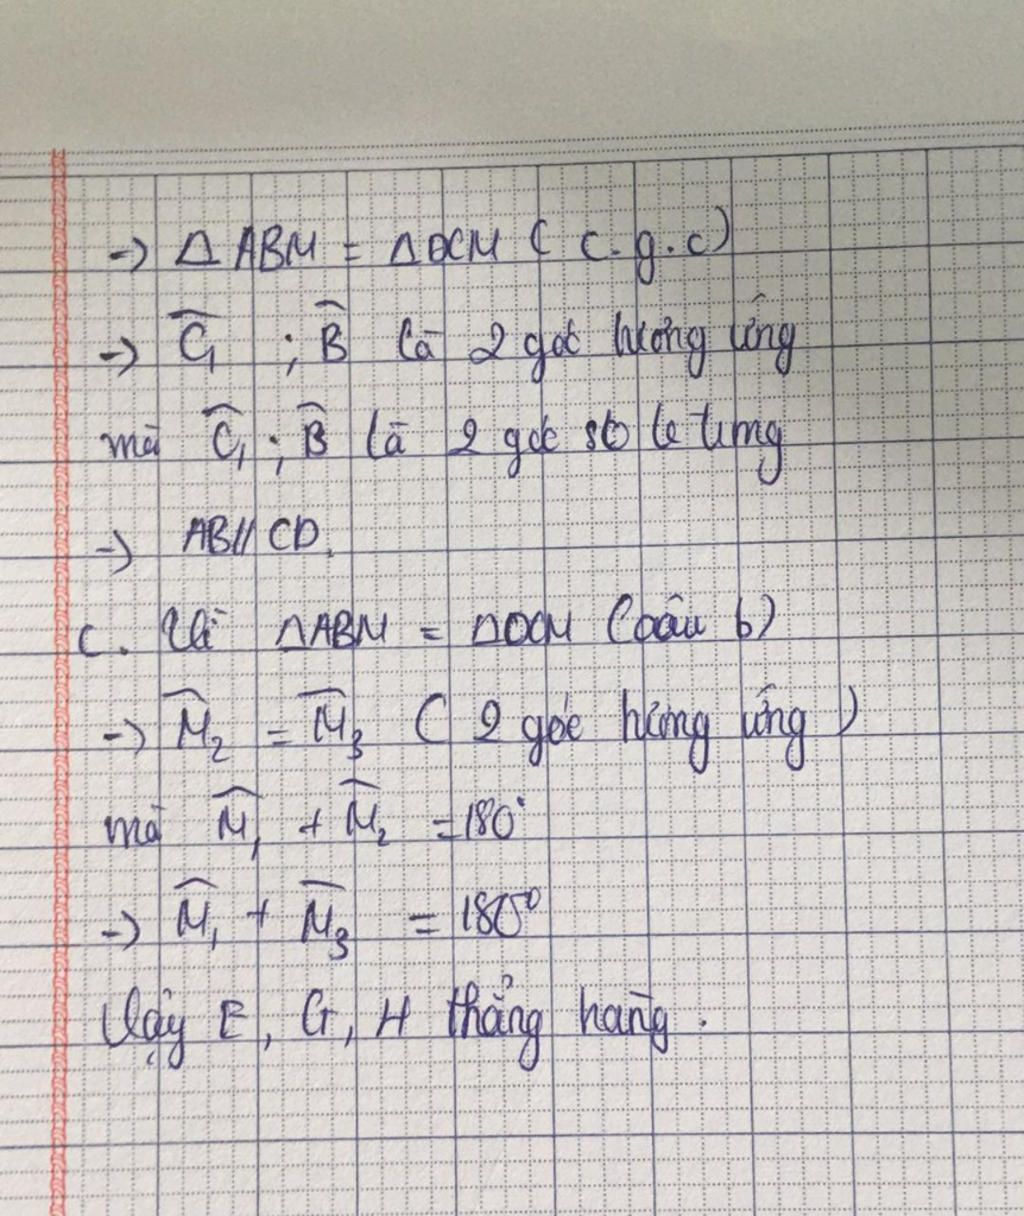 → Δ ABM = Δ DCM ( c.g.c)
→ Ĉ₁ ; B̂ là 2 góc tương ứng
mà Ĉ₁ ; B̂ là 2 góc so le trong
→ AB // CD.
C. Vì ΔABM = ΔDCM (câu b)
→ M̂₂ = M̂₃ ( 2 góc tương ứng )
mà M̂₁ + M̂₂ = 180°
→ M̂₁ + M̂₃ = 180°
Vậy E, G, H thẳng hàng.